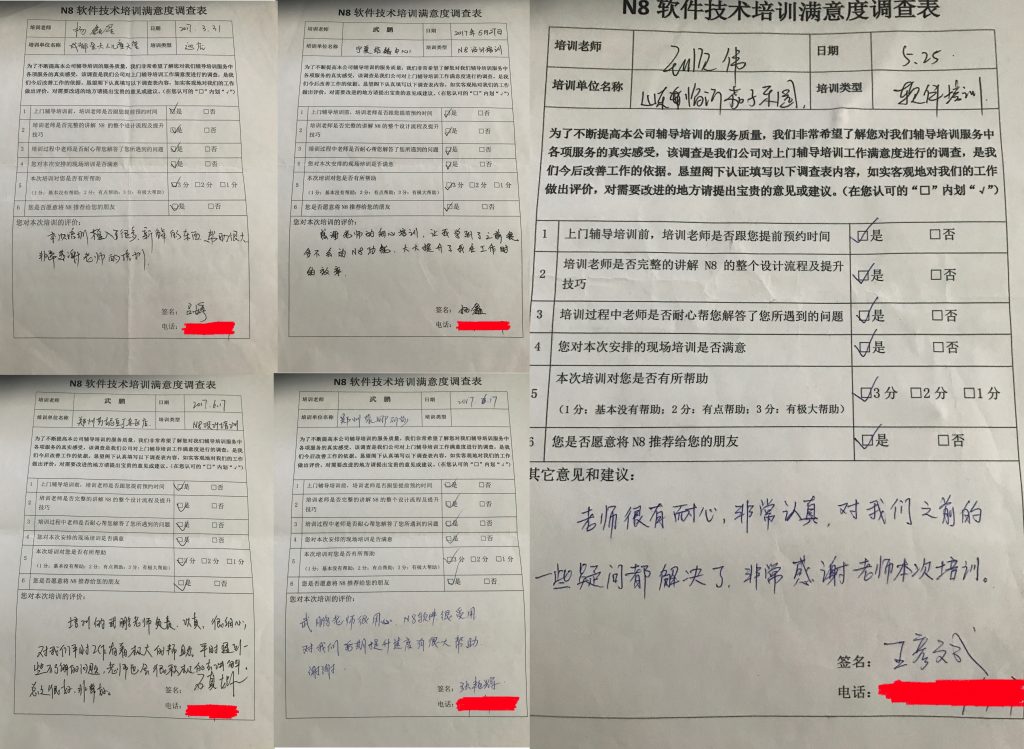 N8 软件技术培训满意度调查表
培训老师
日期
2017.3.31
培训单位名称
培训类型
为了不断提高本公司辅导培训的服务质量，我们非常希望了解您对我们辅导培训服务中
各项服务的真实感受，该调查是我们公司对上门辅导培训工作满意度进行的调查，是我
们今后改善工作的依据。恳望阁下认真填写以下调查表内容，如实客观地对我们的工作
做出评价，对需要改进的地方请提出宝贵的意见或建议。（在您认可的“□”内划“√”）
1 上门辅导培训前，培训老师是否跟您提前预约时间 ☑是 □否
2 培训老师是否完整的讲解 N8 的整个设计流程及提升
技巧 ☑是 □否
3 培训过程中老师是否耐心帮您解答了您所遇到的问题 ☑是 □否
4 您对本次安排的现场培训是否满意 ☑是 □否
5 本次培训对您是否有所帮助
（1 分：基本没有帮助；2 分：有点帮助；3 分：有极大帮助） ☑3 分 □2 分 □1 分
6 您是否愿意将 N8 推荐给您的朋友 ☑是 □否
您对本次培训的评价：
非常感谢老师的培训
签名：
电话：
N8 软件技术培训满意度调查表
培训老师 武 鹏 日期 2017年5月27日
培训单位名称 培训类型 N8培训
为了不断提高本公司辅导培训的服务质量，我们非常希望了解您对我们辅导培训服务中
各项服务的真实感受，该调查是我们公司对上门辅导培训工作满意度进行的调查，是我
们今后改善工作的依据。恳望阁下认真填写以下调查表内容，如实客观地对我们的工作
做出评价，对需要改进的地方请提出宝贵的意见或建议。（在您认可的“□”内划“√”）
1 上门辅导培训前，培训老师是否跟您提前预约时间 ☑是 □否
2 培训老师是否完整的讲解 N8 的整个设计流程及提升
技巧 ☑是 □否
3 培训过程中老师是否耐心帮您解答了您所遇到的问题 ☑是 □否
4 您对本次安排的现场培训是否满意 ☑是 □否
5 本次培训对您是否有所帮助
（1 分：基本没有帮助；2 分：有点帮助；3 分：有极大帮助） ☑3 分 □2 分 □1 分
6 您是否愿意将 N8 推荐给您的朋友 ☑是 □否
您对本次培训的评价：
老师的耐心培训，让我学到了之前我
N8功能，大大提升了我在工作时
的效率。
签名：杨鑫
电话：
N8 软件技术培训满意度调查表
培训老师 武 鹏 日期 2017.6.17
培训单位名称 培训类型 N8设计培训
为了不断提高本公司辅导培训的服务质量，我们非常希望了解您对我们辅导培训服务中
各项服务的真实感受，该调查是我们公司对上门辅导培训工作满意度进行的调查，是我
们今后改善工作的依据。恳望阁下认真填写以下调查表内容，如实客观地对我们的工作
做出评价，对需要改进的地方请提出宝贵的意见或建议。（在您认可的“□”内划“√”）
1 上门辅导培训前，培训老师是否跟您提前预约时间 ☑是 □否
2 培训老师是否完整的讲解 N8 的整个设计流程及提升
技巧 ☑是 □否
3 培训过程中老师是否耐心帮您解答了您所遇到的问题 ☑是 □否
4 您对本次安排的现场培训是否满意 ☑是 □否
5 本次培训对您是否有所帮助
（1 分：基本没有帮助；2 分：有点帮助；3 分：有极大帮助） ☑3 分 □2 分 □1 分
6 您是否愿意将 N8 推荐给您的朋友 ☑是 □否
您对本次培训的评价：
培训的武鹏老师负责、认真、很细心，
对我们平时工作有着极大的帮助，平时遇到一
些不了解的问题，老师也会很积极的
签名：
电话：
N8 软件技术培训满意度调查表
培训老师 武 鹏 日期 2017.6.17
培训单位名称 培训类型
为了不断提高本公司辅导培训的服务质量，我们非常希望了解您对我们辅导培训服务中
各项服务的真实感受，该调查是我们公司对上门辅导培训工作满意度进行的调查，是我
们今后改善工作的依据。恳望阁下认真填写以下调查表内容，如实客观地对我们的工作
做出评价，对需要改进的地方请提出宝贵的意见或建议。（在您认可的“□”内划“√”）
1 上门辅导培训前，培训老师是否跟您提前预约时间 ☑是 □否
2 培训老师是否完整的讲解 N8 的整个设计流程及提升
技巧 ☑是 □否
3 培训过程中老师是否耐心帮您解答了您所遇到的问题 ☑是 □否
4 您对本次安排的现场培训是否满意 ☑是 □否
5 本次培训对您是否有所帮助
（1 分：基本没有帮助；2 分：有点帮助；3 分：有极大帮助） ☑3 分 □2 分 □1 分
6 您是否愿意将 N8 推荐给您的朋友 ☑是 □否
您对本次培训的评价：
武鹏老师很用心，N8软件很实用
对我们后期提升速度有很大帮助
谢谢
签名：
电话：
N8 软件技术培训满意度调查表
培训老师 日期 5.25
培训单位名称 培训类型 软件培训
为了不断提高本公司辅导培训的服务质量，我们非常希望了解您对我们辅导培训服务中
各项服务的真实感受，该调查是我们公司对上门辅导培训工作满意度进行的调查，是我
们今后改善工作的依据。恳望阁下认证填写以下调查表内容，如实客观地对我们的工作
做出评价，对需要改进的地方请提出宝贵的意见或建议。（在您认可的“□”内划“√”）
1 上门辅导培训前，培训老师是否跟您提前预约时间 ☑是 □否
2 培训老师是否完整的讲解 N8 的整个设计流程及提升
技巧 ☑是 □否
3 培训过程中老师是否耐心帮您解答了您所遇到的问题 ☑是 □否
4 您对本次安排的现场培训是否满意 ☑是 □否
5 本次培训对您是否有所帮助
（1 分：基本没有帮助；2 分：有点帮助；3 分：有极大帮助） ☑3 分 □2 分 □1 分
6 您是否愿意将 N8 推荐给您的朋友 ☑是 □否
其它意见和建议：
老师很有耐心，非常认真，对我们之前的
一些疑问都解决了，非常感谢老师本次培训。
签名：王彦斌
电话：